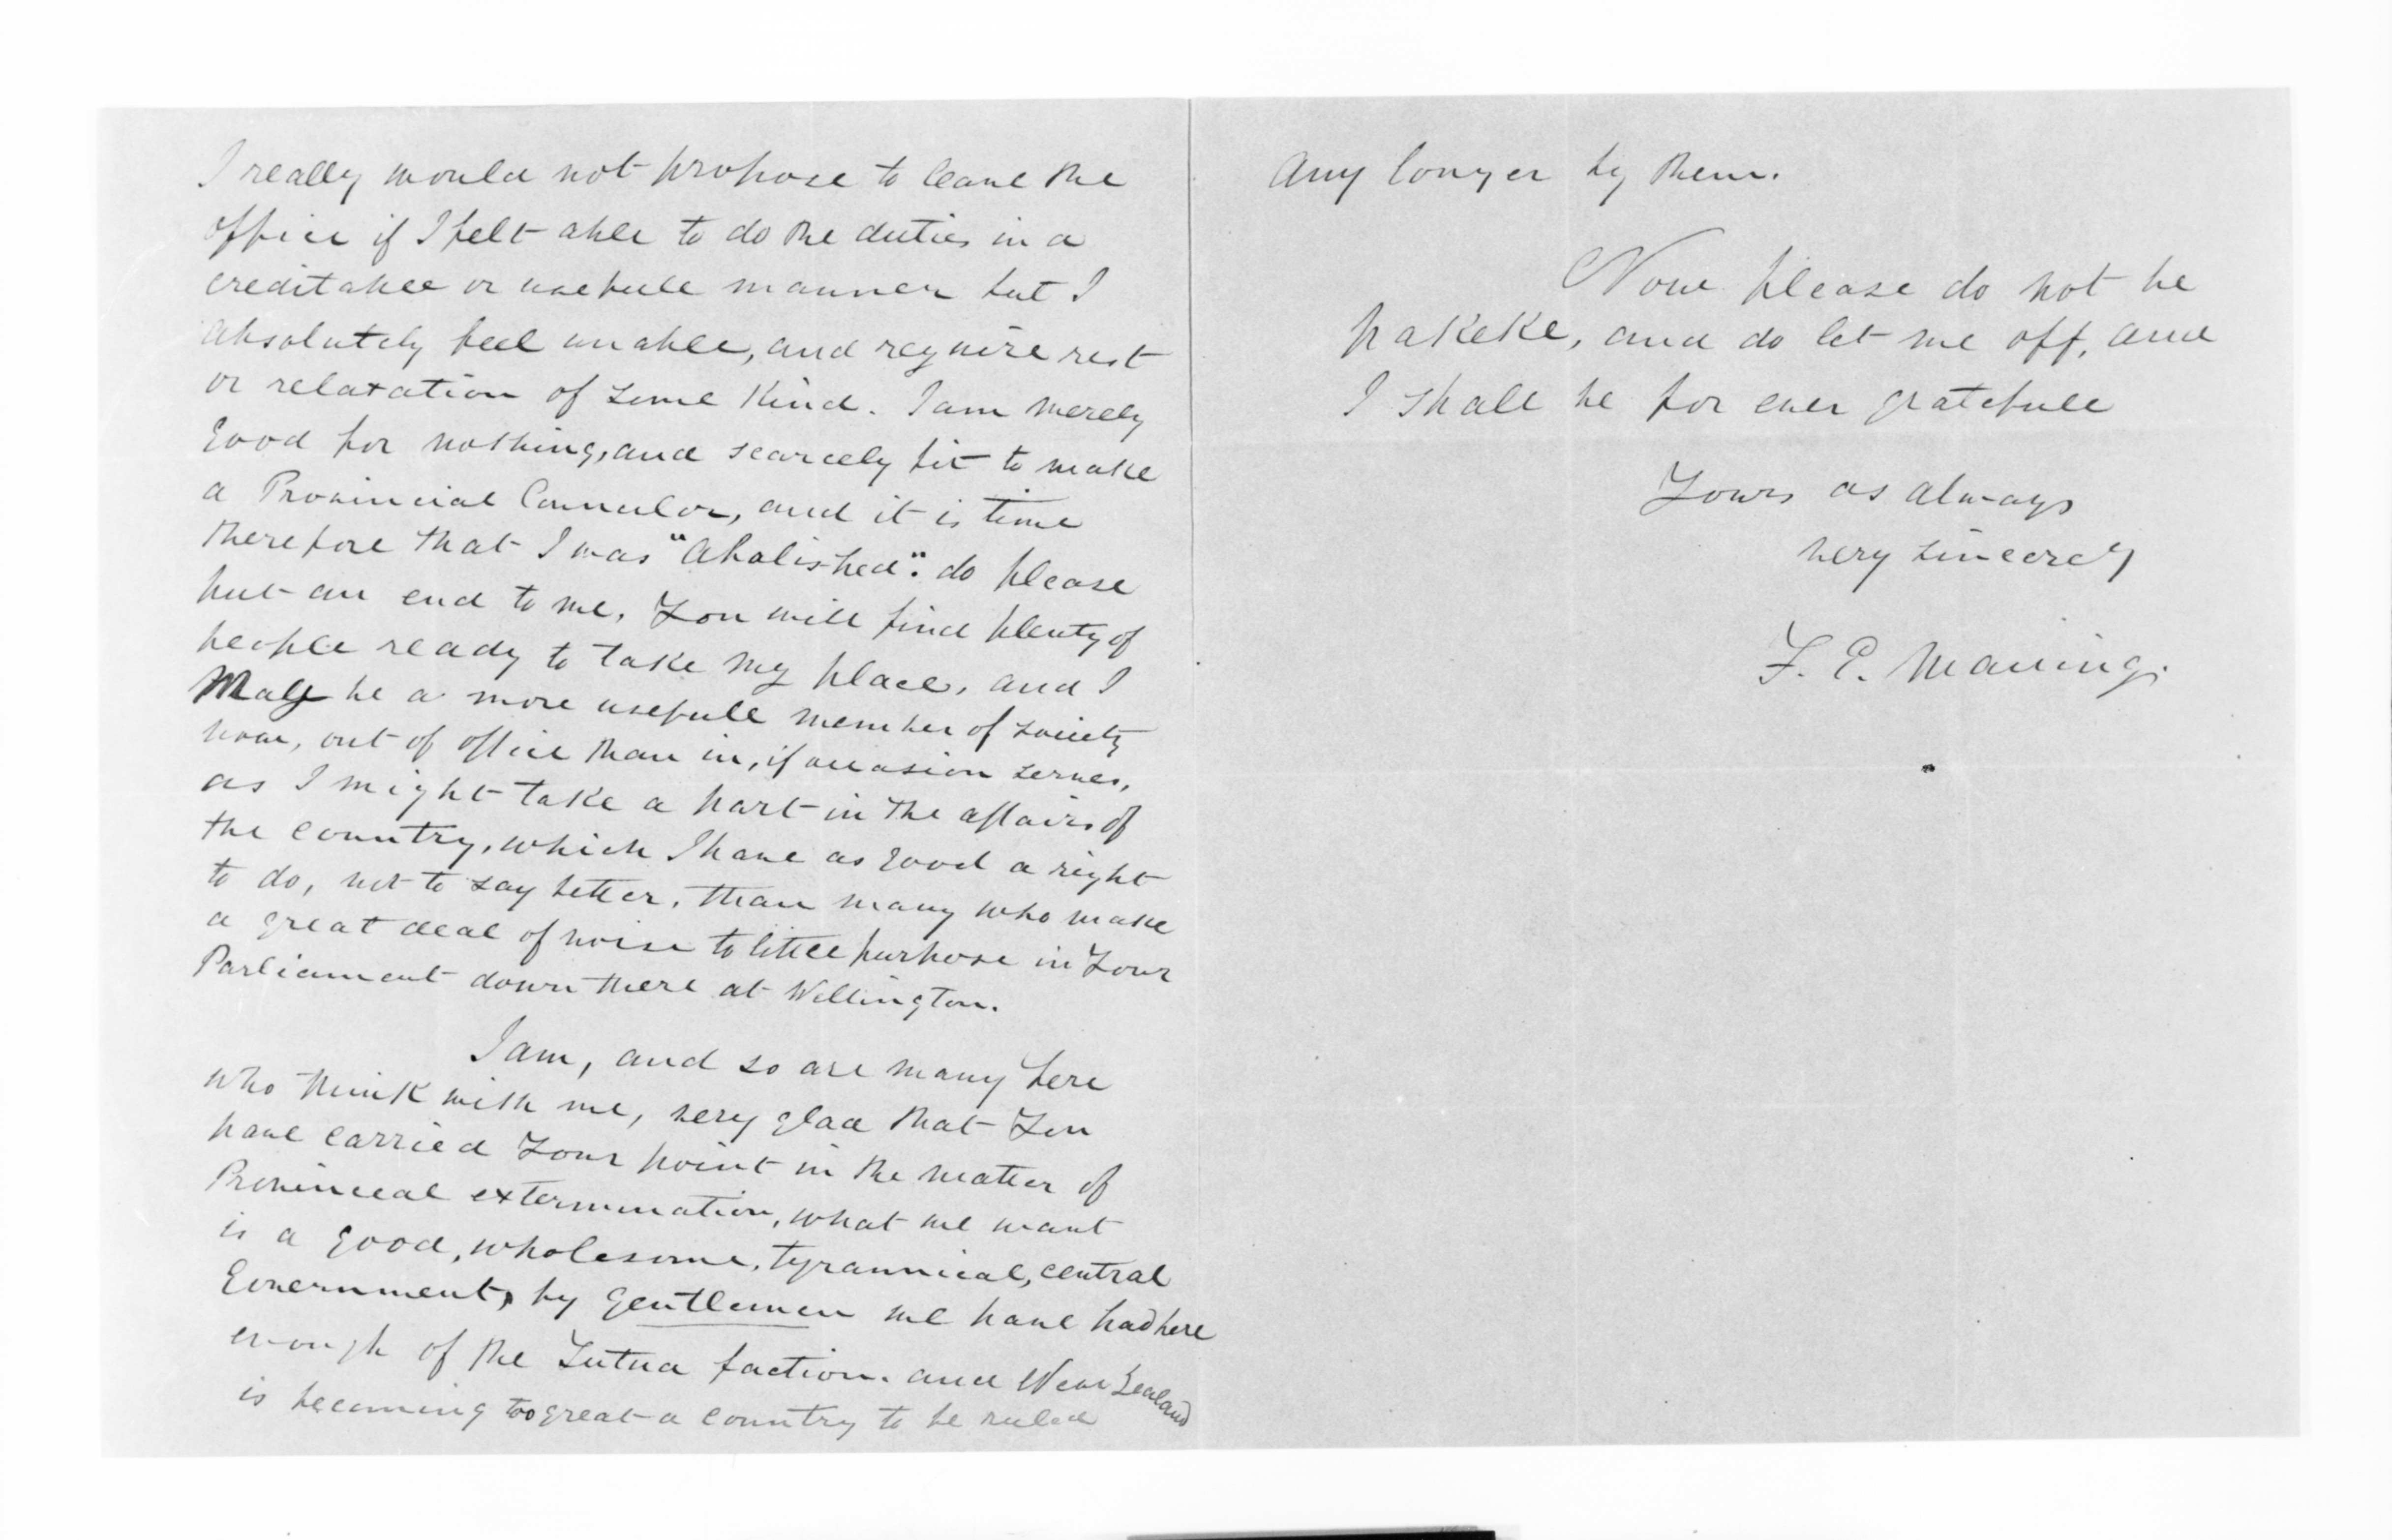 I really would not propose to leave the
office if I felt able to do the duties in a
creditable or usefull manner but I
absolutely feel unable, and require rest
or relaxation of some kind. I am merely
good for nothing, and scarcely fit to make
a Provincial Councelor, and it is time
therefore that I was "Abolished". do please
put an end to me. You will find plenty of
people ready to take my place, and I
May be a more usefull member of society
now, out of office than in, if occasion serves,
as I might take a part in the affairs of
the country, which I have as good a right
to do, not to say better, than many who make
a great deal of noise to little purpose in Your
Parliament down there at Wellington.
I am, and so are many here
who think with me, very glad that You
have carried Your point in the matter of
Provincial extermination, what we want
is a good, wholesome, tyrannical, central
Government, by gentlemen we have had here
enough of the Tutua faction. and New Zealand
is becoming too great a country to be ruled
any longer by them.
Now please do not be
pakeke, and do let me off, and
I shall be for ever gratefull
Yours as always
very sincerely
F. E. Maning.